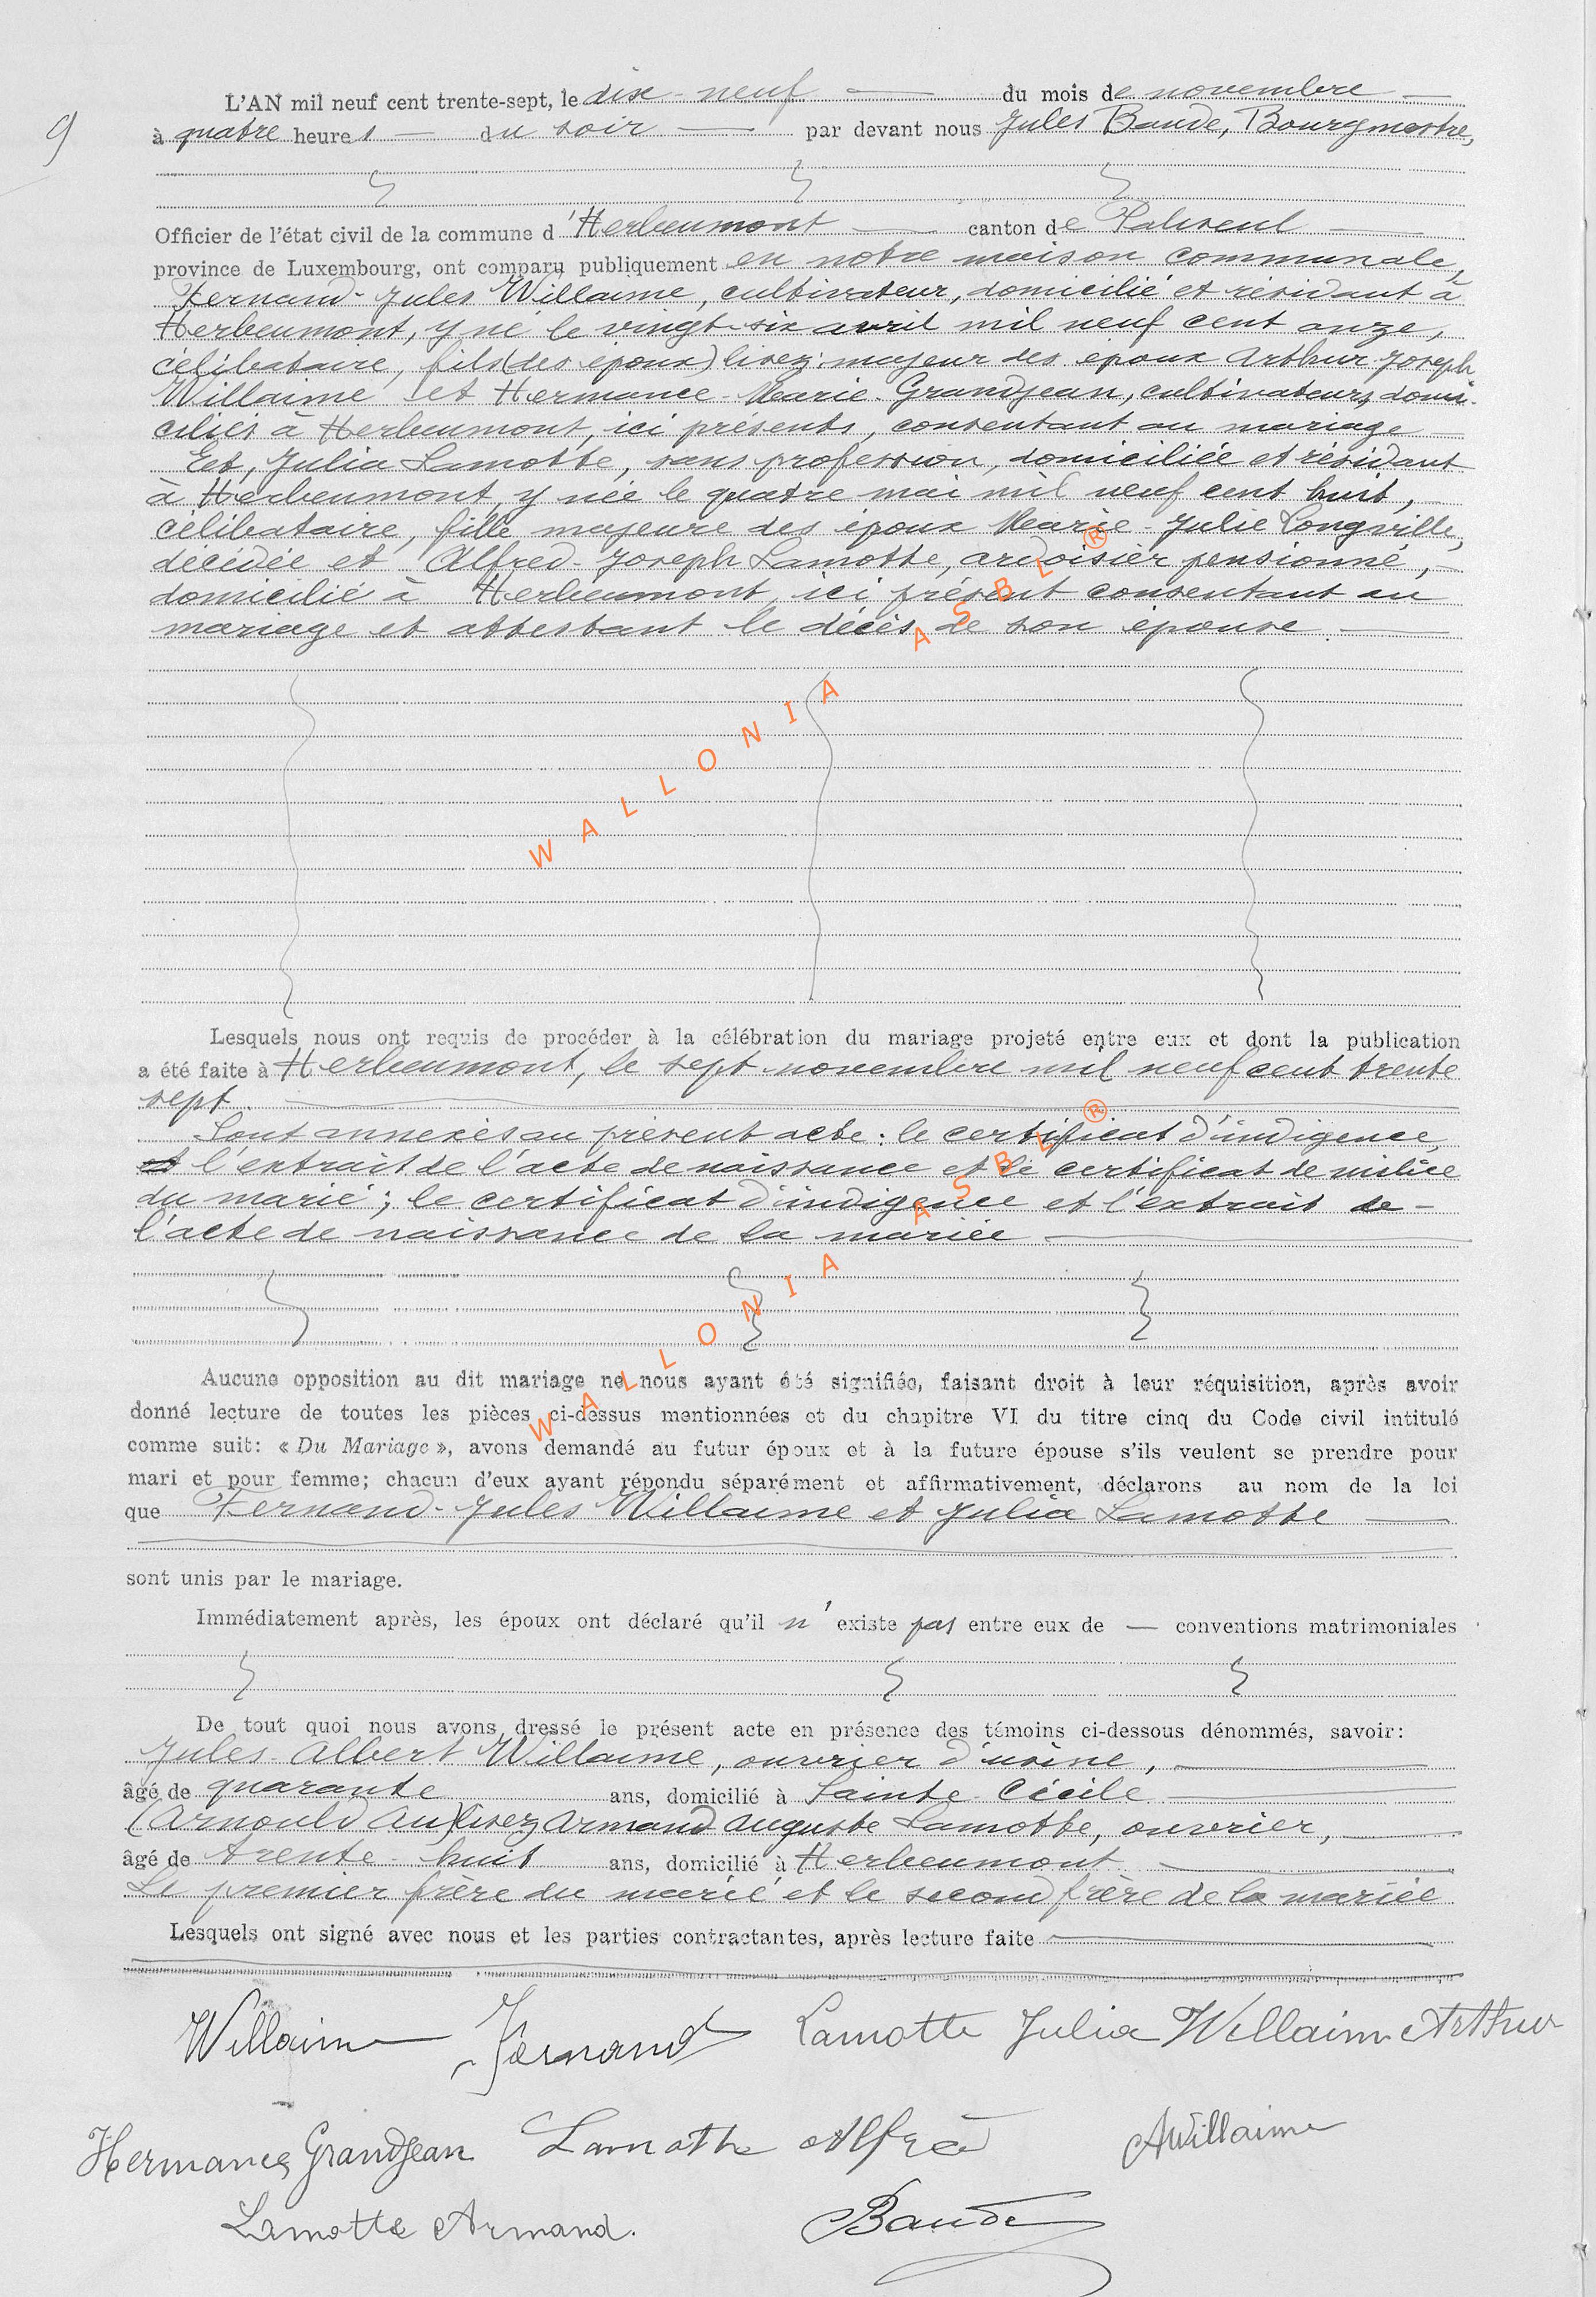 9
L'AN mil neuf cent trente-sept, le dix-neuf du mois de novembre
à quatre heures du soir par devant nous Jules Baude, Bourgmestre,
Officier de l'état civil de la commune d'Herbeumont canton de Paliseul
province de Luxembourg, ont comparu publiquement en notre maison communale,
Fernand-Jules Willaime, cultivateur, domicilié et résidant à
Herbeumont, y né le vingt-six avril mil neuf cent onze,
célibataire, fils (des époux) lisez: majeur des époux Arthur-Joseph
Willaime et Hermance-Marie-Grandjean, cultivateurs, domi-
ciliés à Herbeumont, ici présents, consentant au mariage
Et, Julia Lamotte, sans profession, domiciliée et résidant
à Herbeumont, y née le quatre mai mil neuf cent huit,
célibataire, fille majeure des époux Marie-Julie Longville,
décédée et Alfred-Joseph Lamotte, ardoisier pensionné,
domicilié à Herbeumont, ici présent consentant au
mariage et attestant le décès de son épouse.
WALLONIA ASBL ®
Lesquels nous ont requis de procéder à la célébration du mariage projeté entre eux et dont la publication
a été faite à Herbeumont, le sept novembre mil neuf cent trente
sept.
Sont annexés au présent acte: le certificat d'indigence,
et l'extrait de l'acte de naissance et le certificat de milice
du marié; le certificat d'indigence et l'extrait de
l'acte de naissance de la mariée
WALLONIA ASBL ®
Aucune opposition au dit mariage ne nous ayant été signifiée, faisant droit à leur réquisition, après avoir
donné lecture de toutes les pièces ci-dessus mentionnées et du chapitre VI du titre cinq du Code civil intitulé
comme suit: « Du Mariage », avons demandé au futur époux et à la future épouse s'ils veulent se prendre pour
mari et pour femme; chacun d'eux ayant répondu séparément et affirmativement, déclarons au nom de la loi
que Fernand-Jules Willaime et Julia Lamotte
sont unis par le mariage.
Immédiatement après, les époux ont déclaré qu'il n'existe pas entre eux de — conventions matrimoniales
De tout quoi nous avons dressé le présent acte en présence des témoins ci-dessous dénommés, savoir:
Jules-Albert Willaime, ouvrier d'usine,
âgé de quarante ans, domicilié à Sainte-Cécile
(Arnould Au) lisez Armand Auguste Lamotte, ouvrier,
âgé de trente-huit ans, domicilié à Herbeumont
Le premier frère du marié et le second frère de la mariée
Lesquels ont signé avec nous et les parties contractantes, après lecture faite
Willaime Fernand Lamotte Julia Willaime Arthur
Hermance Grandjean Lamotte Alfred AWillaime
Lamotte Armand. Baude